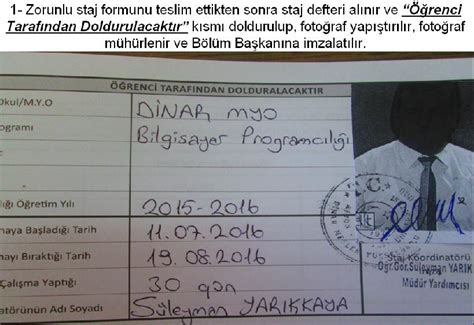 1- Zorunlu staj formunu teslim ettikten sonra staj defteri alınır ve "Öğrenci
Tarafından Doldurulacaktır" kısmı doldurulup, fotoğraf yapıştırılır, fotoğraf
mühürlenir ve Bölüm Başkanına imzalatılır.
ÖĞRENCİ TARAFINDAN DOLDURALACAKTIR
Okul/M.Y.O DİNAR MYO
ogramı Bilgisayar Programcılığı
lığı Öğretim Yılı 2015-2016
maya Başladığı Tarih 11.07.2016
mayı Bıraktığı Tarih 19.08.2016
Çalışma Yaptığı 30 gün
atörünün Adı Soyadı Süleyman YARIKKAYA
T.C.
Staj Koordinatörü
Öğr.Gör.Süleyman YARIK
Müdür Yardımcısı